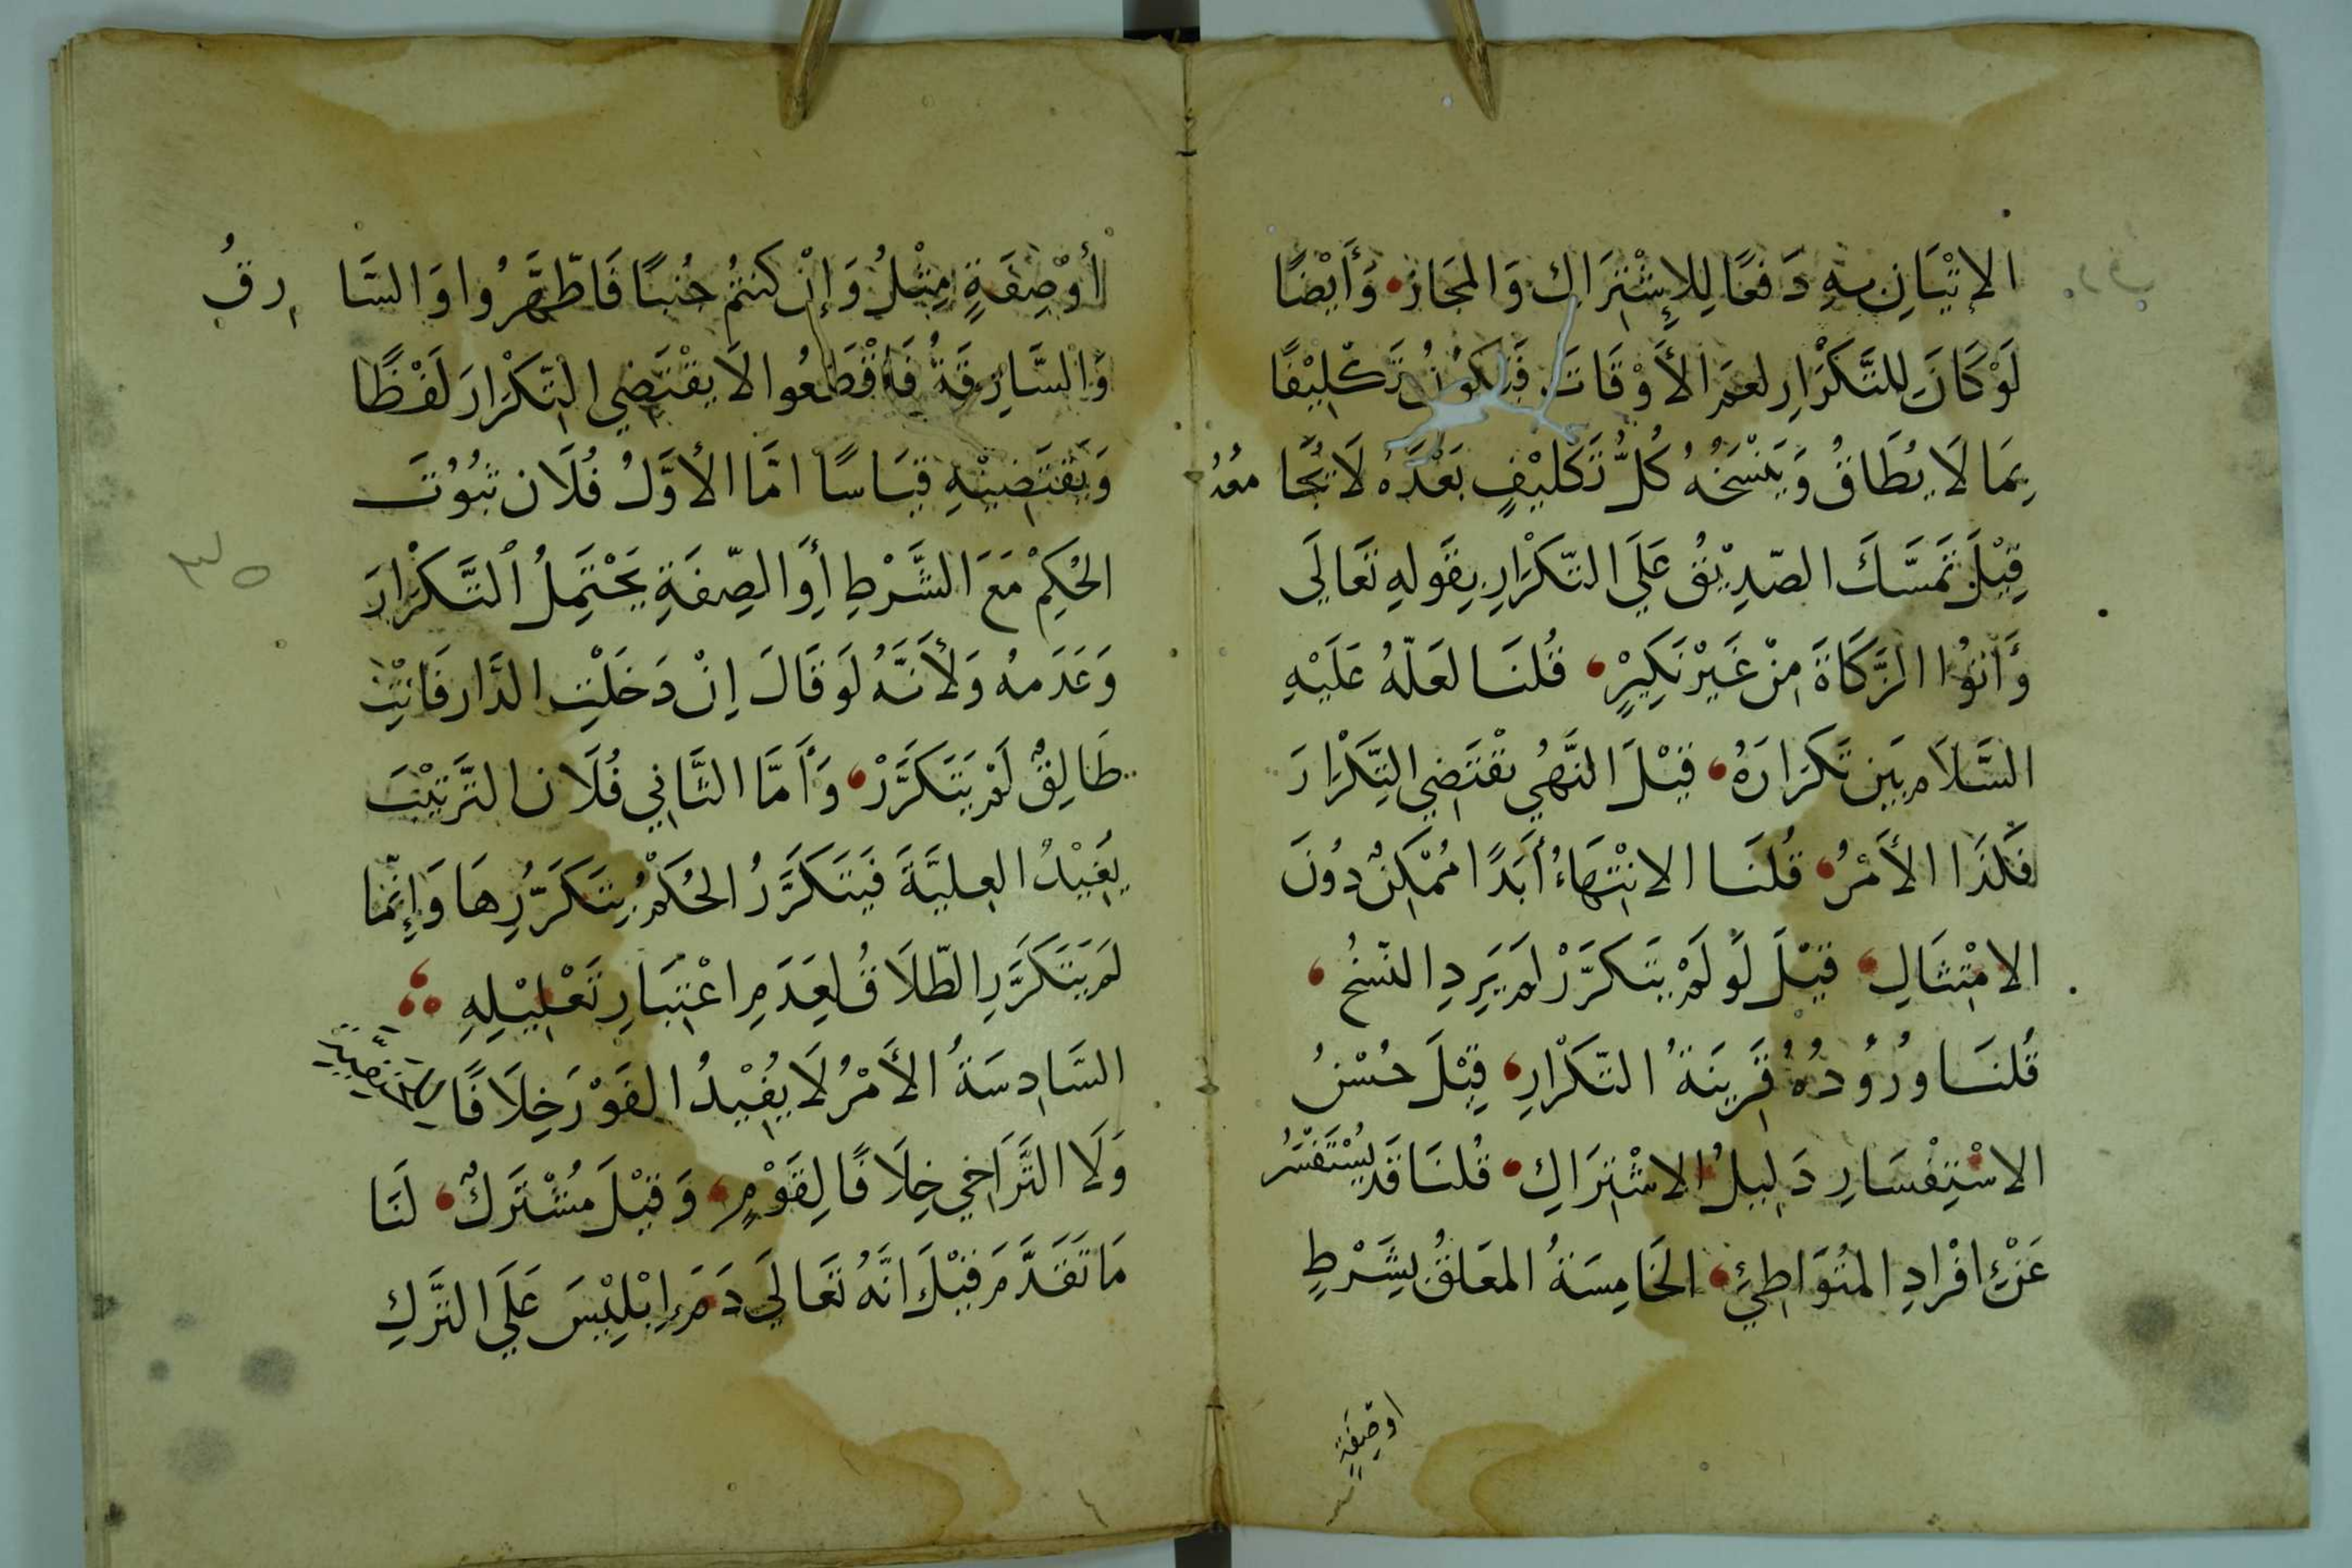 الإِتْيَانِ بِهِ دَفعًا لِلإِشْتِرَاك وَالمجَاز، وَأَيْضًا
لَوْ كَانَ لِلتَّكْرَارِ لعم الأَوْقَاتَ فَيَكُونُ تَكْلِيْفًا
بِمَا لَا يُطَاقُ وَيَنْسَخُهُ كُلُّ تَكْلِيْفٍ بَعْدَهُ لَا يُجَا مِعُهُ
قِيْلَ تَمَسَّكَ الصّدِيْقُ عَلَي التّكْرَارِ بِقَولِهِ تَعَالَي
وَأتوُا الزَّكَاةَ مِنْ غَيْرِ نَكِيْرٍ، قُلنَا لعَلّهُ عَلَيْهِ
السَّلَام بَيَن تَكرَارَهُ، قِيْلَ النَّهيُ يقْتَضِي التِّكْرَارَ
فَكَذَا الأَمْرُ، قُلنَا الانْتِهَاءُ أَبَدًا مُمْكِنٌ دُونَ
الامْتِثَالِ، قِيْلَ لَو لَمْ يتَكرَّرْ لَم يَرِدِ النّسْخُ،
قُلنَا وُرُوُدُهُ قَرِينَةُ التّكْرَارِ، قِيْلَ حُسْنُ
الاسْتِفْسَارِ دَلِيلُ الاشْتِرَاكِ، قُلنَا قَد يُسْتَفْسَرُ
عَنْ افْرَادِ المُتُوَاطِئِ، الخَامِسَةُ المعَلقُ بِشَرْطٍ
اوصِفَةٍ
أوْصِفَةٍ مِثْلُ وَإِنْ كنتُمْ جُنبًا فَاطّهَّرُوا وَالسَّا رِقُ
وَالسَّارِقَةُ فَاقْطَعُوا لَا يقْتَضِي التّكْرَارَ لَفْظًا
وَيَقتَضِيْهِ قيَاسًا امّا الأَوَّلُ فُلَان ثبُوُتَ
الحُكِمْ مَعَ الشَّرْطِ أَوِ الصِّفَةِ يَحْتَمِلُ التَّكْرَارَ
وَعَدَمهُ وَلأَنَّهُ لَو قَالَ اِنْ دَخَلْتِ الدَّار فَانْتِ
طَالِقٌ لَمْ يَتَكَرَّرْ، وَأَمَّا الثَّانِي فُلَان التَّرتيْبَ
يفِيْدُ العِليَّةَ فَيتَكَرَّرُ الحُكمْ بِتَكَرُّرِهَا وَإِنَّمَا
لَم يَتَكَرَّرِ الطّلَاقُ لِعَدَمِ اعْتِبَارِ تَعْلِيْلِهِ
السَّادِسَةُ الأَمْرُ لَا يُفِيْدُ الفَوْرَ خِلَافًا
وَلَا التَّرَاخِي خِلَافًا لِقَوْمٍ، وَقِيْلَ مُشْتَرَكٌ، لَنَا
مَا تَقَدَّمَ قِيْلَ انَّهُ تَعَالَي ذَمَ اِبْلِيْسَ عَلَي التّركِ